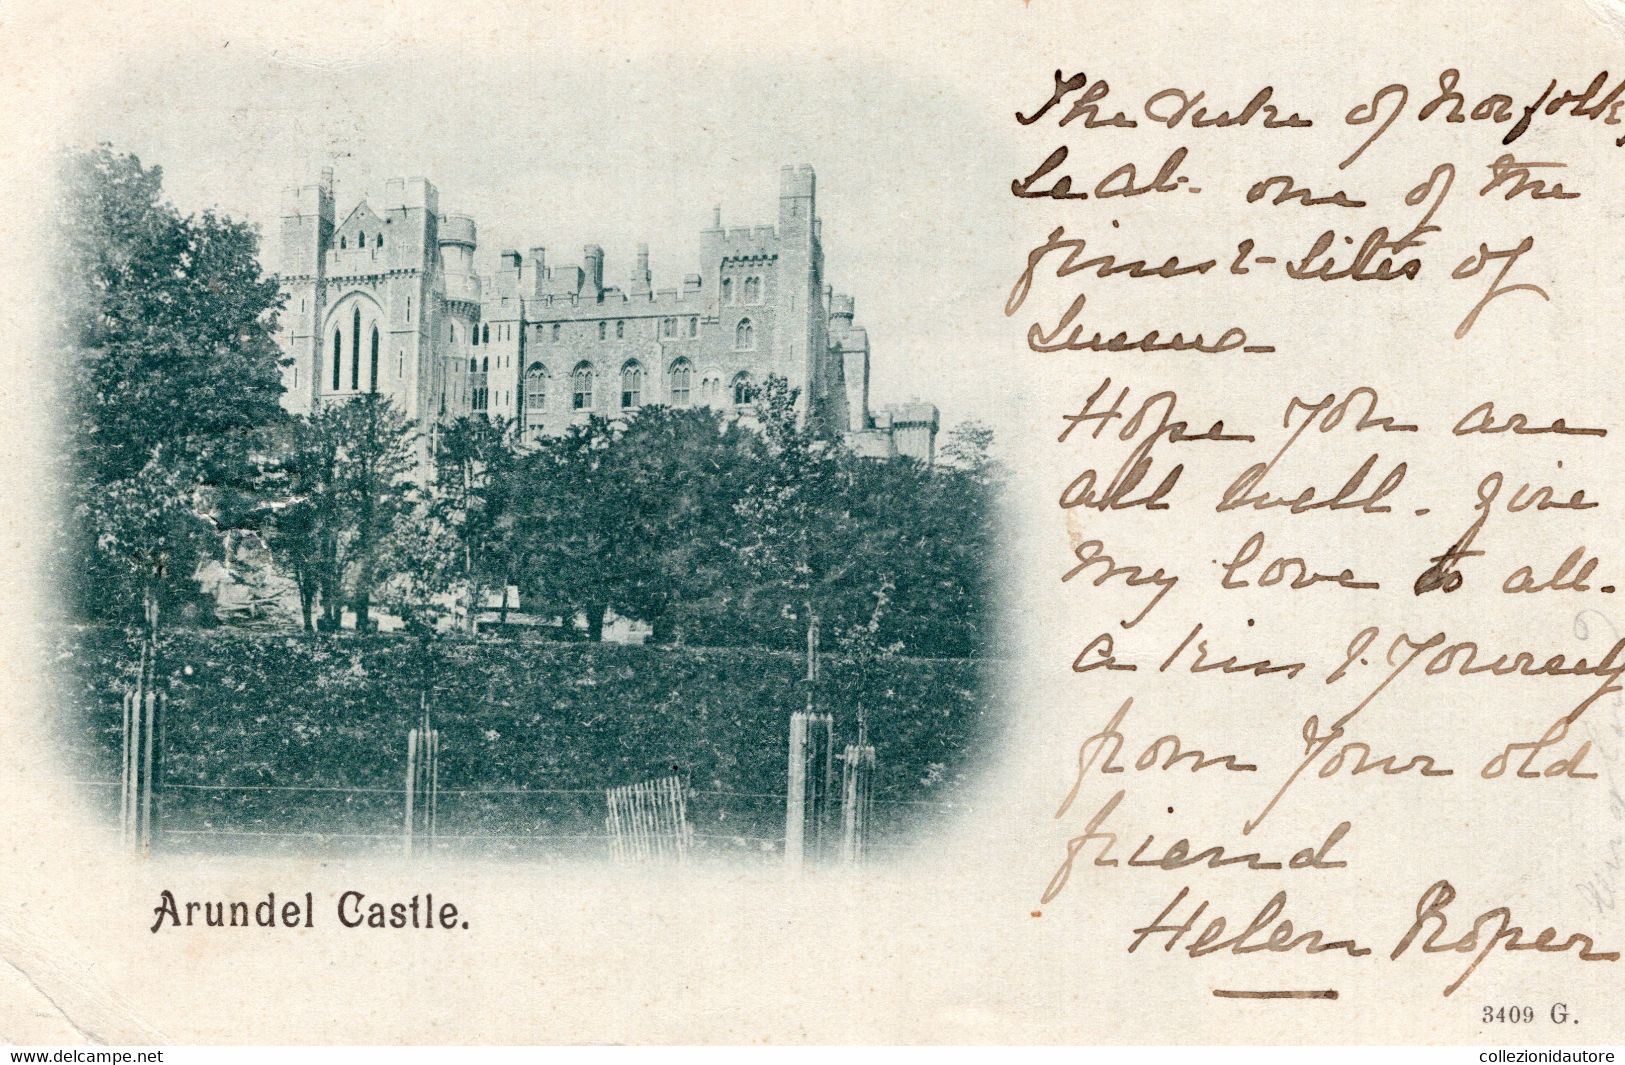 The Duke of Norfolk,
Seat - one of the
finest Sites of
Hope you are
all well. Give
my love to all.
a kiss f. Yourself
from Your old
friend
Helen Roper
Arundel Castle.
3409 G.
www.delcampe.net
collezionidautore